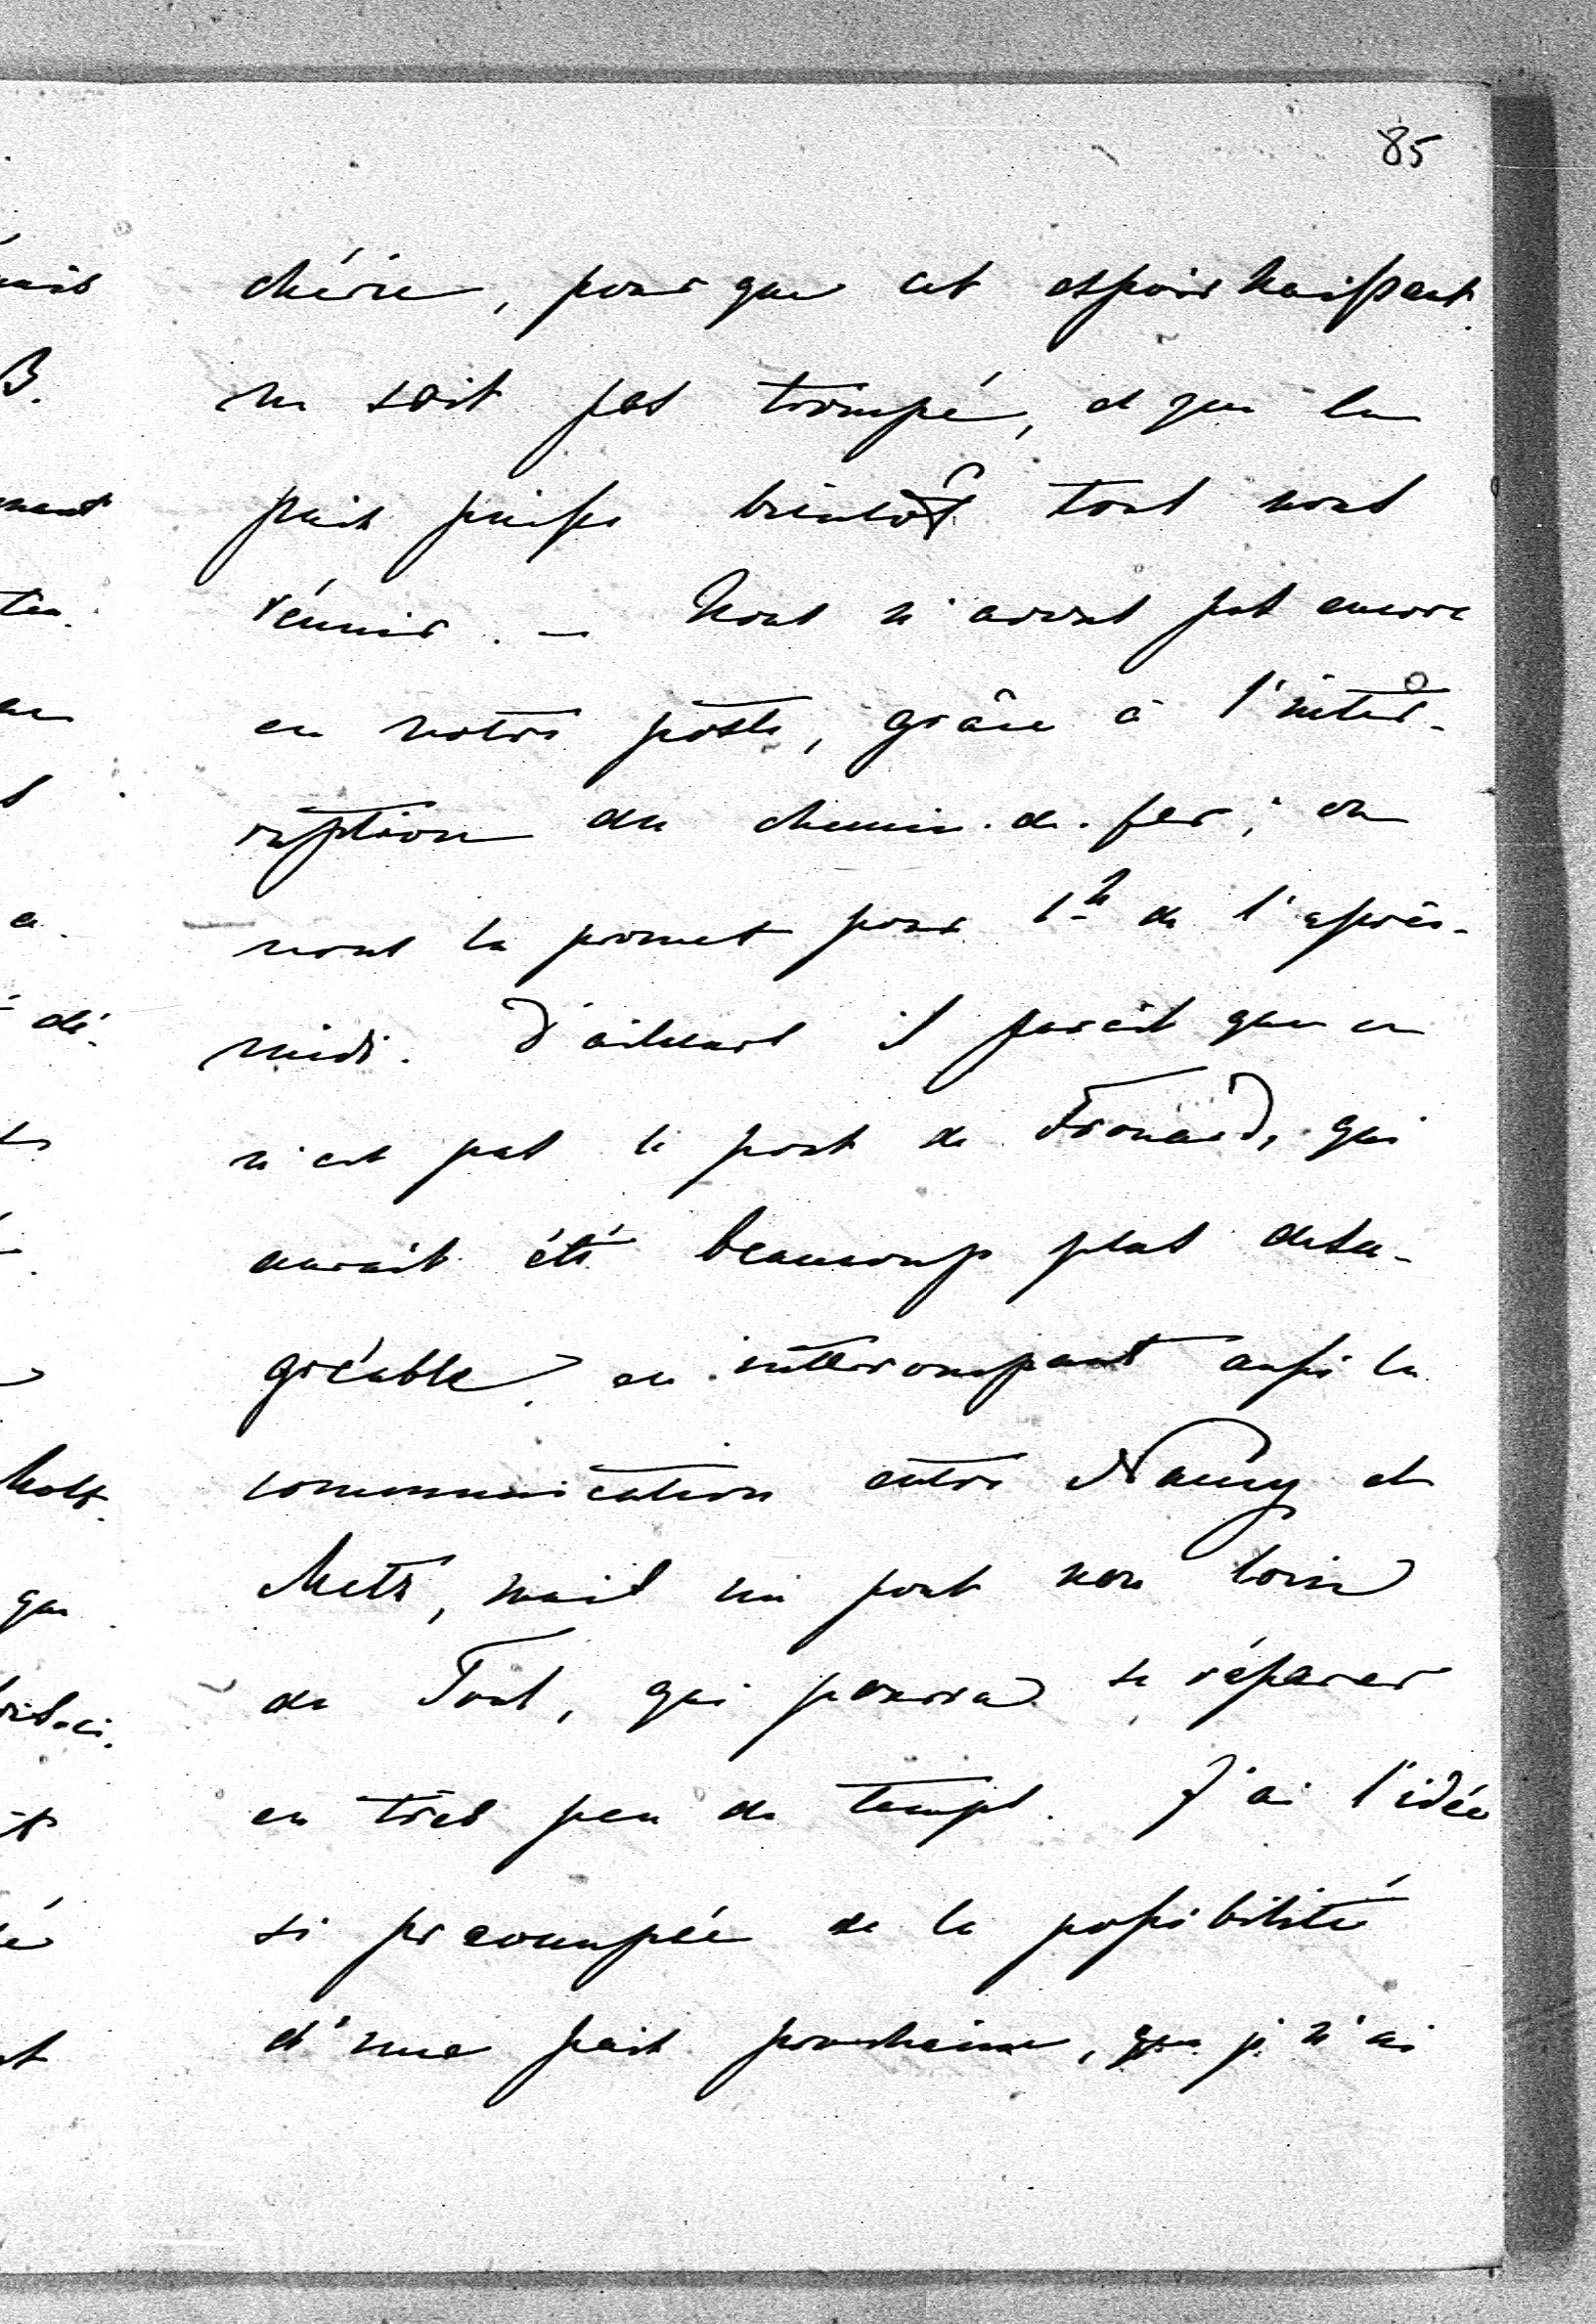 85
chérie, pour que cet espoir naissant
ne soit pas trompé, et que la
paix puisse bientôt tous nous
réunir. — Nous n'avons pas encore
eu notre poste, grâce à l'inter-
ruption du chemin-de-fer; on
nous la promet pour 1h de l'après-
midi. D'ailleurs il parait que ce
n'est pas le pont de Frouard, qui
aurait été beaucoup plus desa-
gréable, en interrompant aussi la
communication entre Nancy et
Metz, mais un pont non loin
de Toul, qui pourra se réparer
en très peu de temps. J'ai l'idée
si préoccupée de la possibilité
d'une paix prochaine, que je n'ai